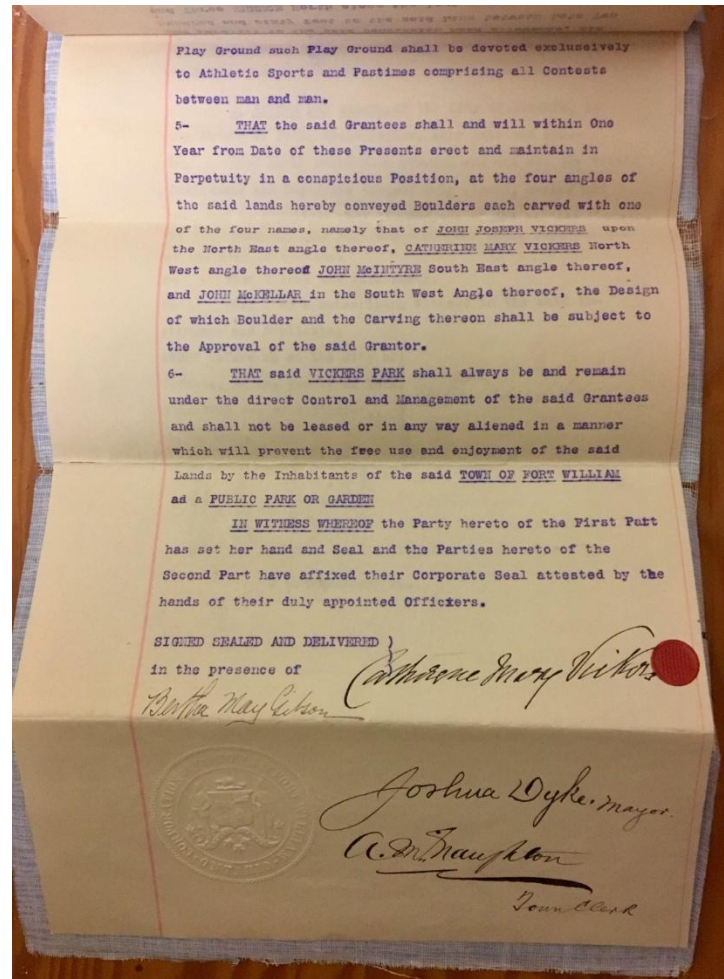 Play Ground such Play Ground shall be devoted exclusively
to Athletic Sports and Pastimes comprising all Contests
between man and man.
5- THAT the said Grantees shall and will within One
Year from Date of these Presents erect and maintain in
Perpetuity in a conspicious Position, at the four angles of
the said lands hereby conveyed Boulders each carved with one
of the four names, namely that of JOHN JOSEPH VICKERS upon
the North East angle thereof, CATHERINE MARY VICKERS North
West angle thereof JOHN McINTYRE South East angle thereof,
and JOHN McKELLAR in the South West Angle thereof, the Design
of which Boulder and the Carving thereon shall be subject to
the Approval of the said Grantor.
6- THAT said VICKERS PARK shall always be and remain
under the direct Control and Management of the said Grantees
and shall not be leased or in any way aliened in a manner
which will prevent the free use and enjoyment of the said
Lands by the Inhabitants of the said TOWN OF FORT WILLIAM
ad a PUBLIC PARK OR GARDEN
IN WITNESS WHEREOF the Party hereto of the First Part
has set her hand and Seal and the Parties hereto of the
Second Part have affixed their Corporate Seal attested by the
hands of their duly appointed Officters.
SIGNED SEALED AND DELIVERED )
in the presence of
Catherine Mary Vickers
Bertha May Gibson
Joshua Dyke. Mayor.
A. McNaughton
Town Clerk